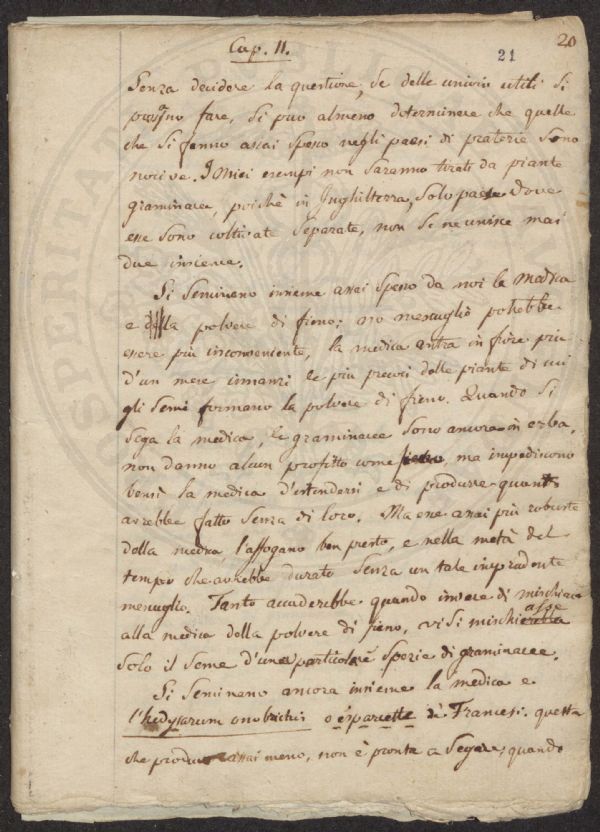 Cap. II.
21
20
Senza decidere la questione, se delle unioni utili si
possano fare, si può almeno determinare che quelle
che si fanno assai spesso negli paesi di praterie sono
nocive. I miei esempi non saranno tirati da piante
graminacee, poichè in Inghilterra, solo paese dove
esse sono coltivate separate, non se ne unisce mai
due insieme.
Si seminano insieme assai spesso da noi la medica
e della polvere di fieno; no mescuglio potrebbe
essere più inconveniente, la medica entra in fiore più
d'un mese innanzi le più precoci delle piante di cui
gli semi formano la polvere di fieno. Quando si
sega la medica, le graminacee sono ancora in erba,
non danno alcun profitto come fieno, ma impediscono
bensì la medica d'estendersi e di produrre quanto
avrebbe fatto senza di loro. Ma ene assai più robuste
della medica, l'affogano ben presto, e nella metà del
tempo che avrebbe durato senza un tale imprudente
mescuglio. Tanto accaderebbe quando invece di mischiare
alla medica della polvere di fieno, vi si mischiasse
solo il seme d'una particolare spezia di graminacee.
Si seminano ancora insieme la medica e
l'hedysarum onobrichis o esparcette de Francesi. questa
che produce assai meno, non è pronta a segare, quando